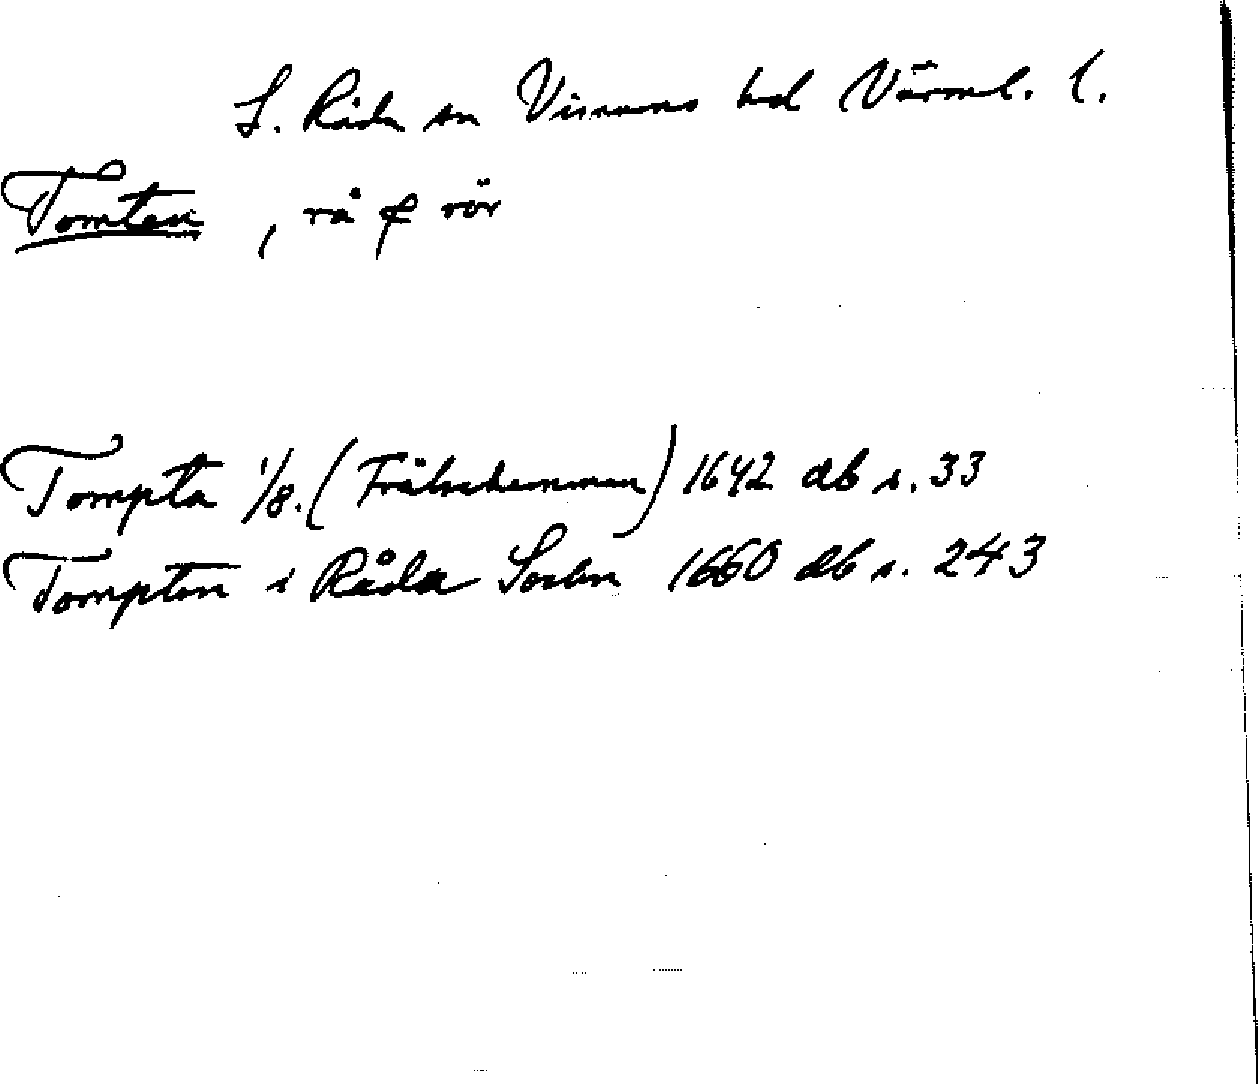 S. Råda sn Visnums hd Värml. l.
Tomten, rå & rör
Tompta 1/8. (Frälsehemman) 1642 db s. 33
Tompten i Råda Sochn 1660 db s. 243